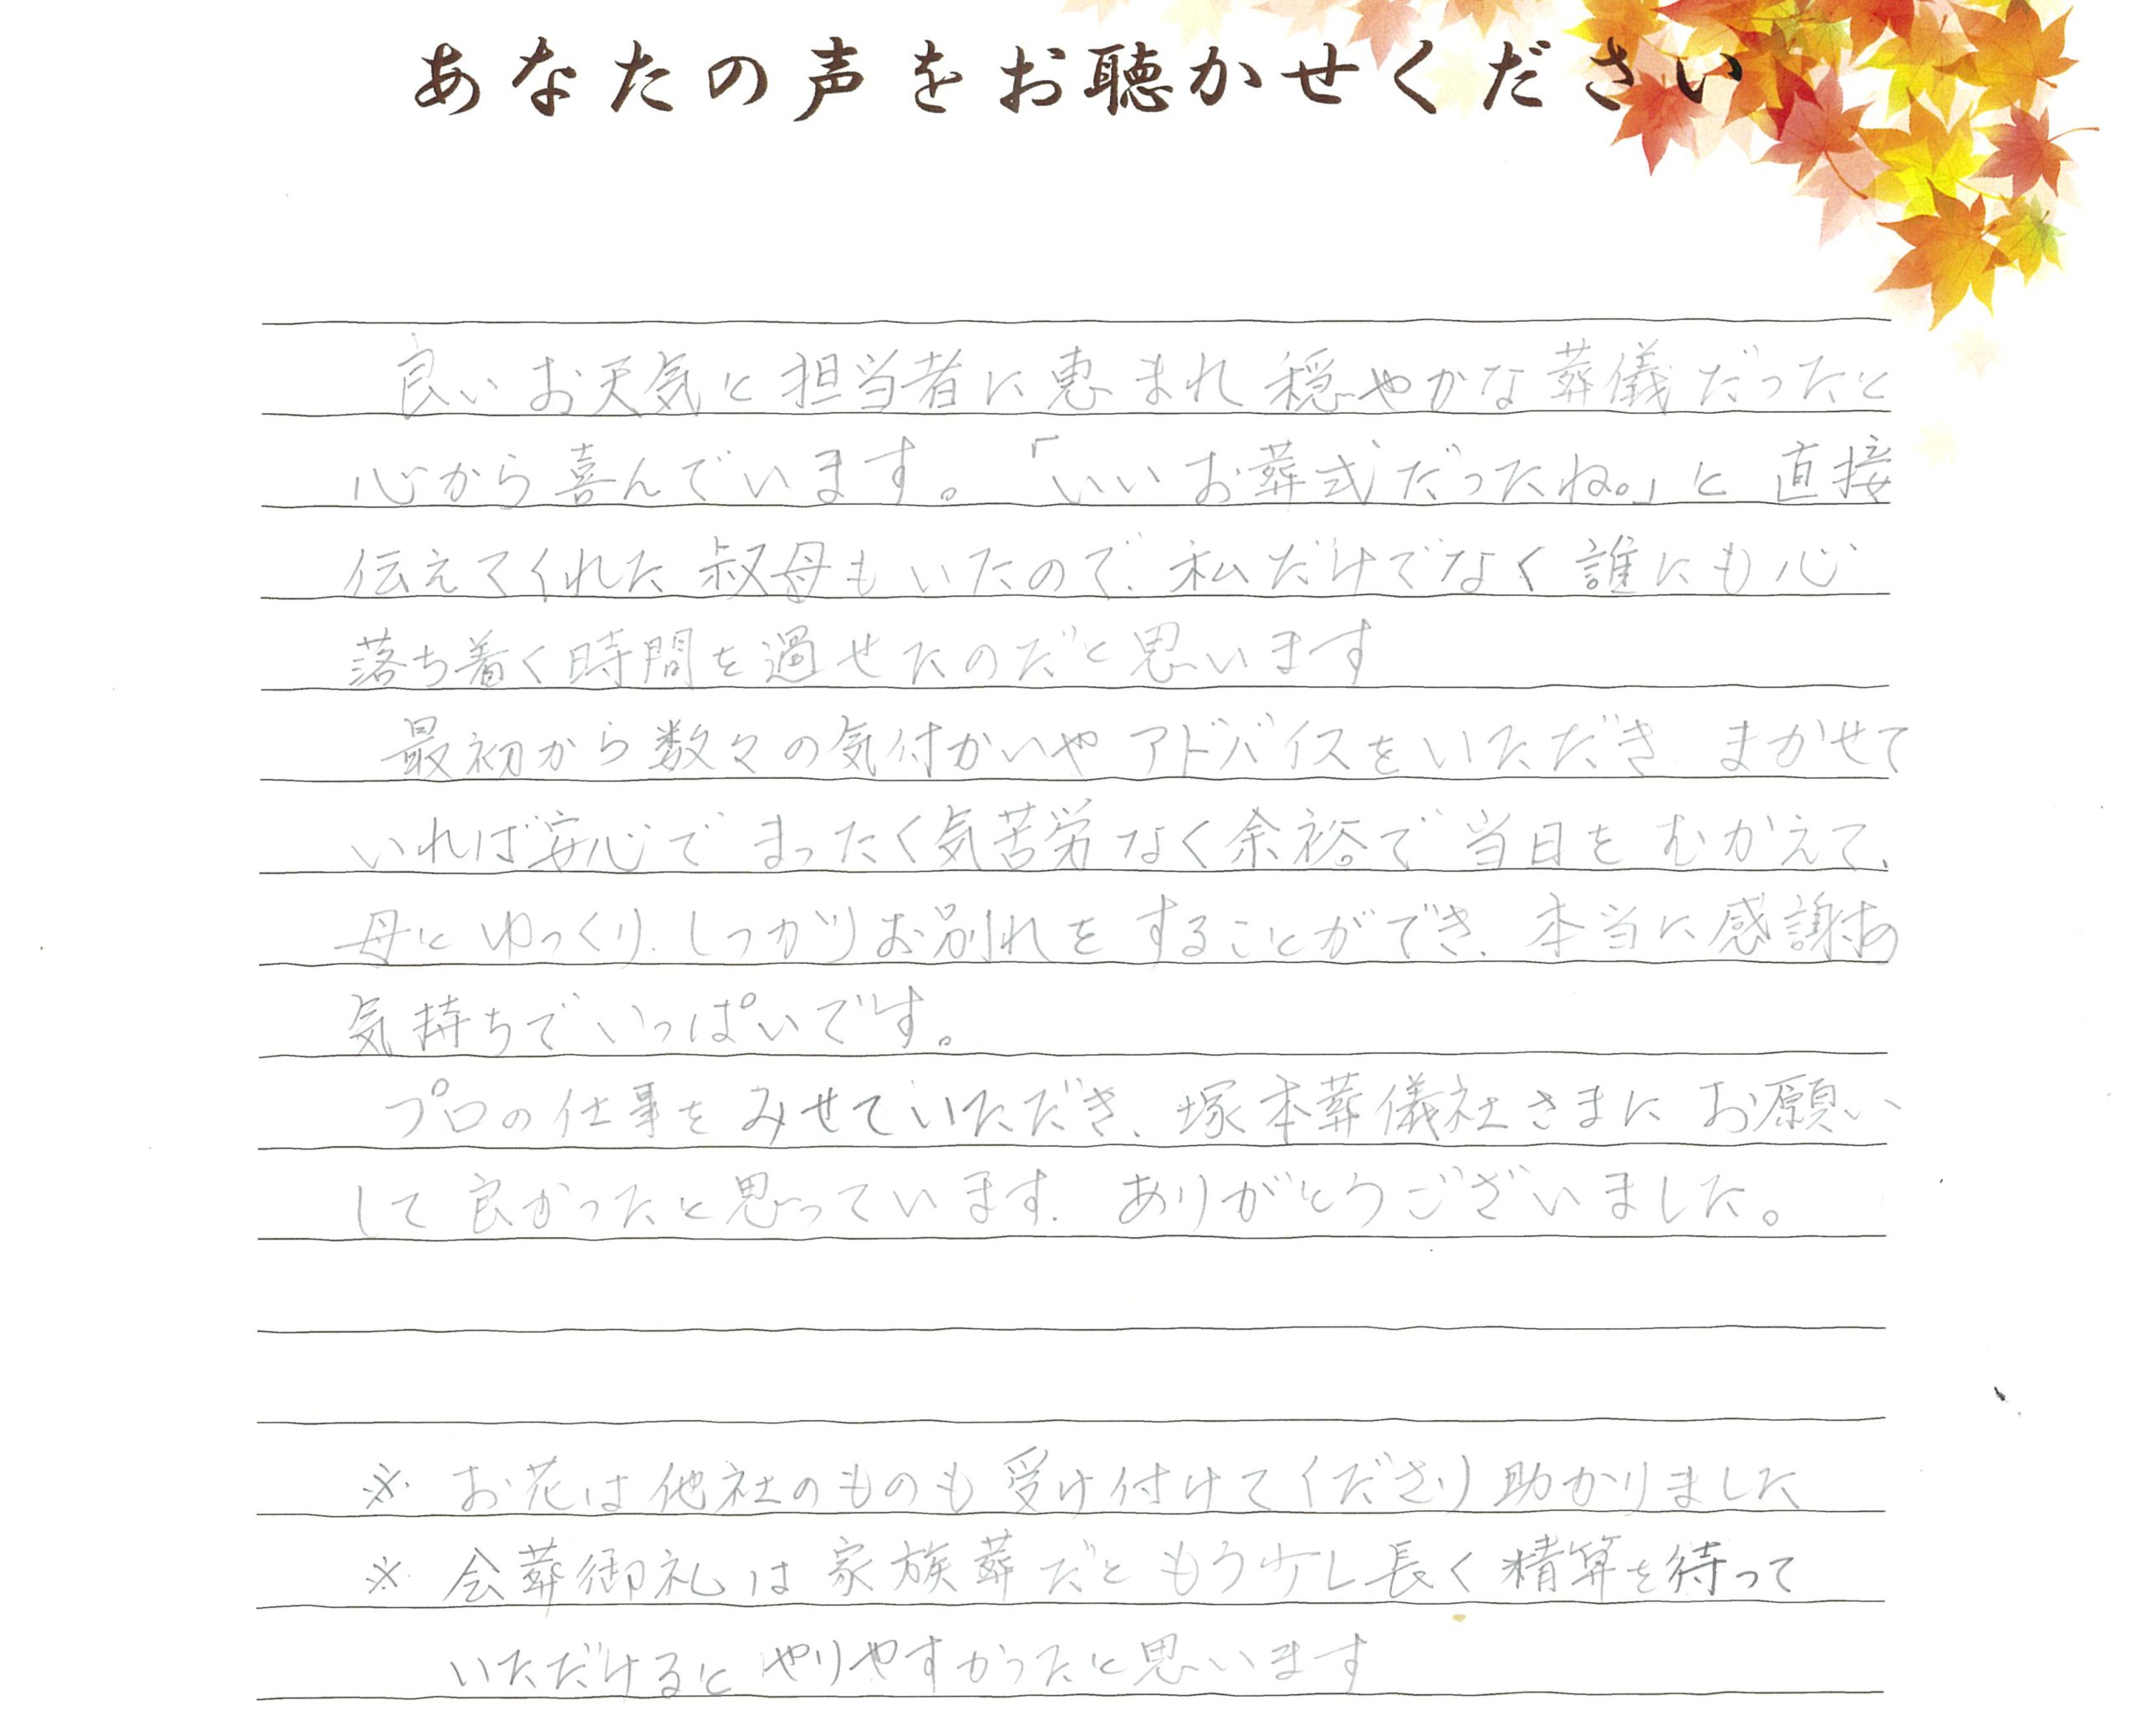 あなたの声をお聴かせください
良いお天気と担当者に恵まれ穏やかな葬儀だったと
心から喜んでいます。「いいお葬式だったね。」と直接
伝えてくれた叔母もいたので、私だけでなく誰にも心
落ち着く時間を過せたのだと思います
最初から数々の気付かいやアドバイスをいただき まかせて
いれば安心で まったく気苦労なく余裕で当日をむかえて、
母とゆっくり、しっかりお別れをすることができ、本当に感謝の
気持ちでいっぱいです。
プロの仕事をみせていただき、塚本葬儀社さまにお願い
して良かったと思っています. ありがとうございました。
※ お花は他社のものも受け付けてくださり助かりました
※ 会葬御礼は家族葬だともう少し長く精算を待って
いただけるとやりやすかったと思います